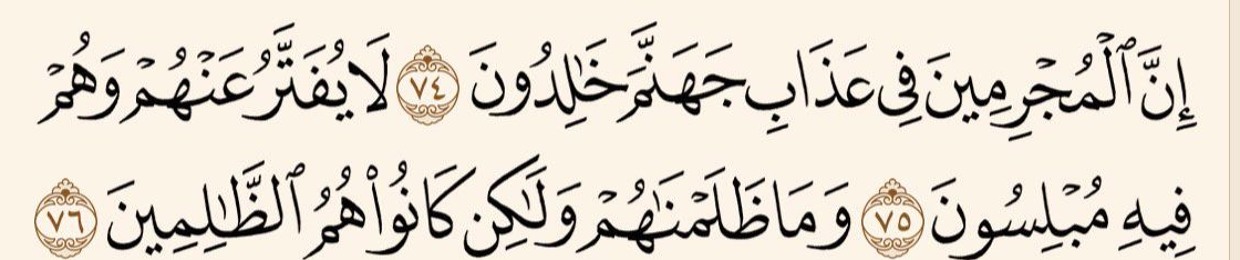 إِنَّ ٱلْمُجْرِمِينَ فِى عَذَابِ جَهَنَّمَ خَـٰلِدُونَ ٧٤ لَا يُفَتَّرُ عَنْهُمْ وَهُمْ
فِيهِ مُبْلِسُونَ ٧٥ وَمَا ظَلَمْنَـٰهُمْ وَلَـٰكِن كَانُوا۟ هُمُ ٱلظَّـٰلِمِينَ ٧٦